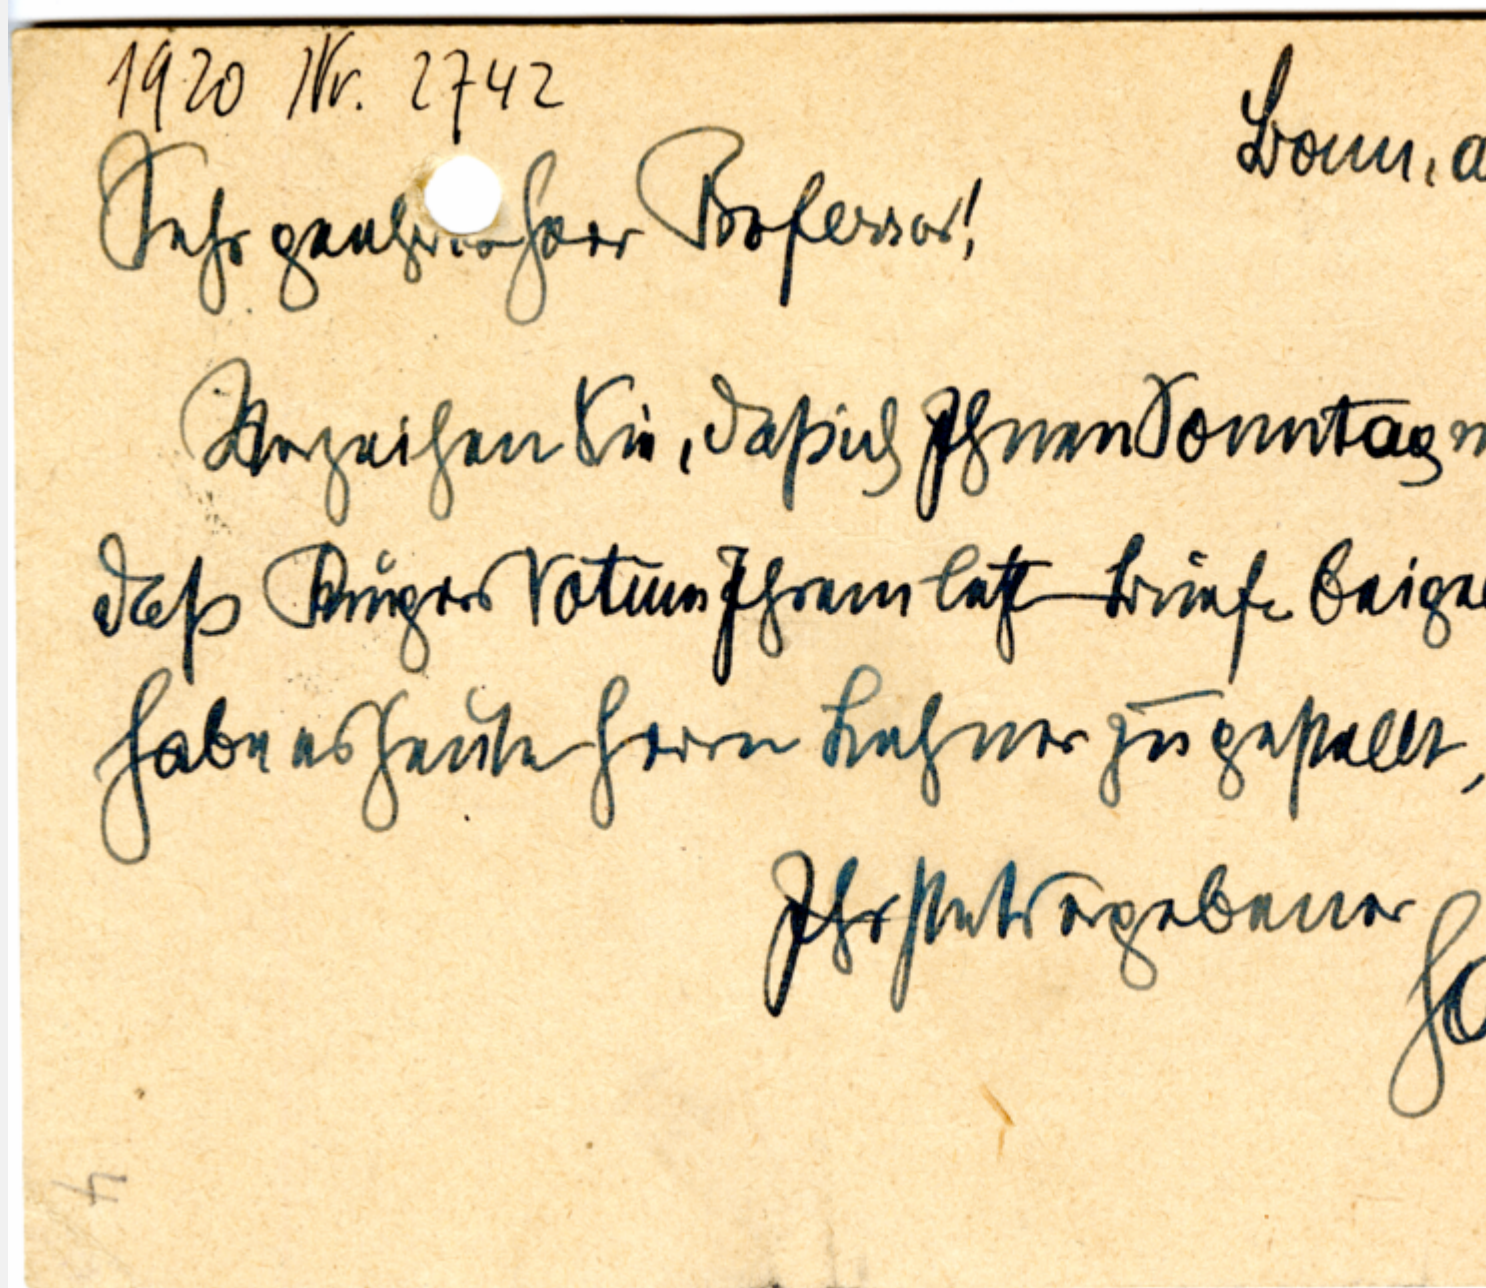 1920 Nr. 2742
Bonn, a
Sehr geehrter Herr Professor!
Verzeihen Sie, daß ich Ihnen Sonntag
daß Krügers Votum Ihrem letzt Briefe beige
habe es heute Herrn Lehner zugestellt,
Ihr stets ergebener